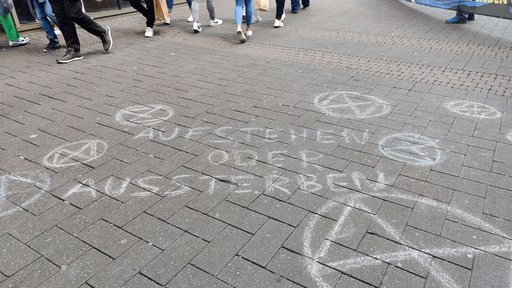 AUFSTEHEN
ODER
AUSSTERBEN